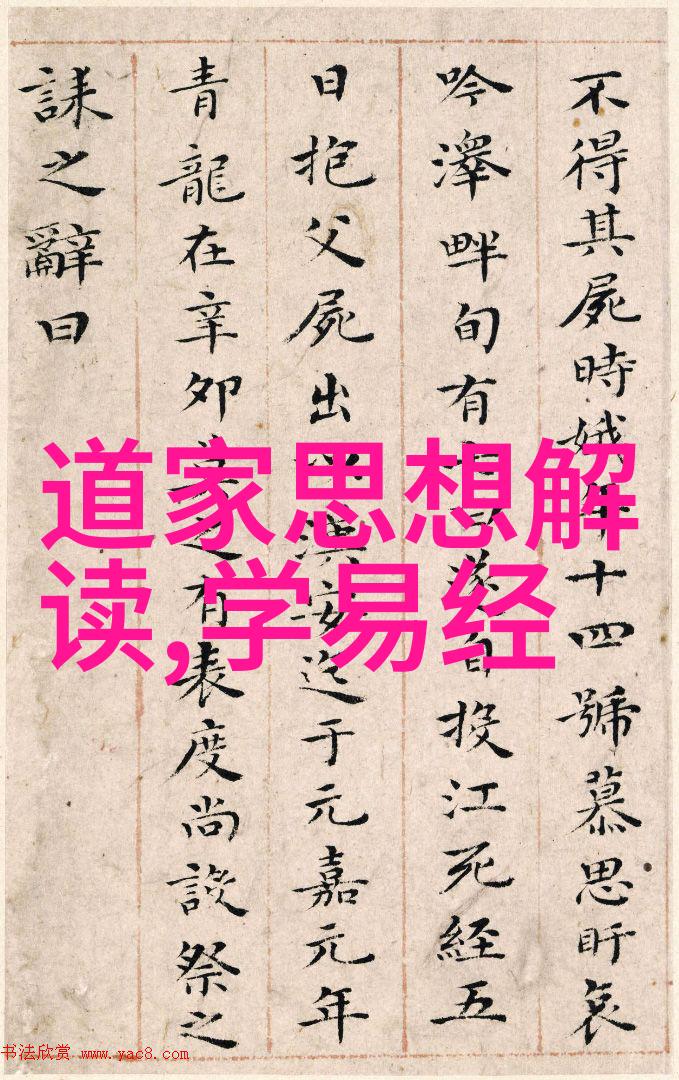 不得其屍時娥年十四號慕思盱哀
吟澤畔旬有遂自投江死經五
日抱父屍出漢安迄于元嘉元年
青龍在辛卯之有表度尚設祭之
誄之辭曰
道家思想解
读,学易经
书法欣赏 www.yac8.com